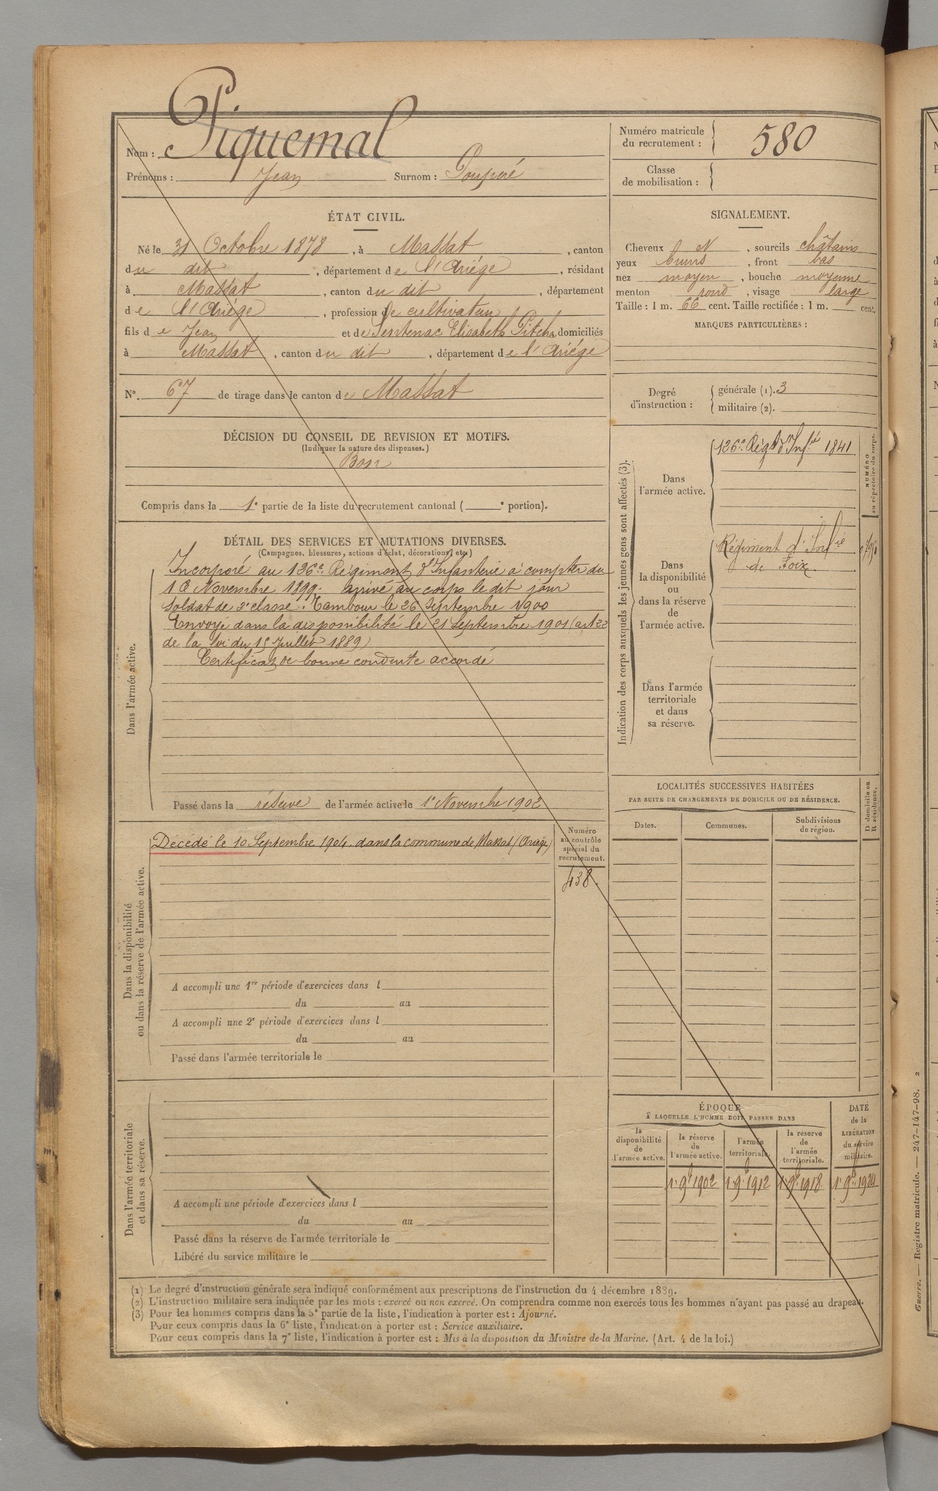 Nom : Piquemal
Prénoms : Jean Surnom : Pouporé
ÉTAT CIVIL.
Né le 31 Octobre 1878, à Massat, canton
du dit, département de l'Ariége, résidant
à Massat, canton du dit, département
de l'Ariége, profession de cultivateur
fils de Jean et de Sentenac Elisabeth domiciliés
à Massat, canton du dit, département de l'Ariége
N° 67 de tirage dans le canton de Massat
DÉCISION DU CONSEIL DE REVISION ET MOTIFS.
(Indiquer la nature des dispenses.)
Bon
Compris dans la 1e partie de la liste du recrutement cantonal ( e portion).
DÉTAIL DES SERVICES ET MUTATIONS DIVERSES.
(Campagnes, blessures, actions d'éclat, décorations, etc.)
Dans l'armée active.
Incorporé au 126e Régiment d'Infanterie à compter du
16 Novembre 1899. arrivé au corps le dit jour
Soldat de 2e classe. Tambour le 26 Septembre 1900
Envoyé dans la disponibilité le 21 Septembre 1901 (art
de la Loi du 15 Juillet 1889)
Certificat de bonne conduite accordé
Passé dans la réserve de l'armée active le 1er Novembre 1902
Dans la disponibilité
ou dans la réserve de l'armée active.
Décédé le 10 Septembre 1904. dans la commune de Massat (Ariège)
Numéro
au contrôle
spécial du
recrutement.
438.
A accompli une 1re période d'exercices dans l
du au
A accompli une 2e période d'exercices dans l
du au
Passé dans l'armée territoriale le
Dans l'armée territoriale
et dans sa réserve.
A accompli une période d'exercices dans l
du au
Passé dans la réserve de l'armée territoriale le
Libéré du service militaire le
Numéro matricule
du recrutement : 580
Classe
de mobilisation :
SIGNALEMENT.
Cheveux N, sourcils châtains
yeux bruns, front bas
nez moyen, bouche moyenne
menton rond, visage large
Taille : 1 m. 66 cent. Taille rectifiée : 1 m. cent.
MARQUES PARTICULIÈRES :
Degré
d'instruction :
générale (1). 3
militaire (2).
Indication des corps auxquels les jeunes gens sont affectés (3).
NUMÉRO
au répertoire du corps.
Dans
l'armée active.
126e Régt d'Infie 1841
Dans
la disponibilité
ou
dans la réserve
de
l'armée active.
Régiment d'Infie
de Foix
Dans l'armée
territoriale
et dans
sa réserve.
LOCALITÉS SUCCESSIVES HABITÉES
PAR SUITE DE CHANGEMENTS DE DOMICILE OU DE RÉSIDENCE.
D domicile ou
R résidence.
Dates. Communes. Subdivisions
de région.
ÉPOQUE
À LAQUELLE L'HOMME DOIT PASSER DANS
la
disponibilité
de
l'armée active.
la réserve
de
l'armée active.
l'armée
territoriale.
la réserve
de
l'armée
territoriale.
DATE
de la
LIBÉRATION
du service
militaire.
1er 9bre 1902 1er 9bre 1912 1er 9bre 1918 1er 9bre
(1) Le degré d'instruction générale sera indiqué conformément aux prescriptions de l'instruction du 4 décembre 1889.
(2) L'instruction militaire sera indiquée par les mots : exercé ou non exercé. On comprendra comme non exercés tous les hommes n'ayant pas passé au drapeau.
(3) Pour les hommes compris dans la 5e partie de la liste, l'indication à porter est : Ajourné.
Pour ceux compris dans la 6e liste, l'indication à porter est : Service auxiliaire.
Pour ceux compris dans la 7e liste, l'indication à porter est : Mis à la disposition du Ministre de la Marine. (Art. 4 de la loi.)
Guerre. — Registre matricule. — 247-147-98. 2